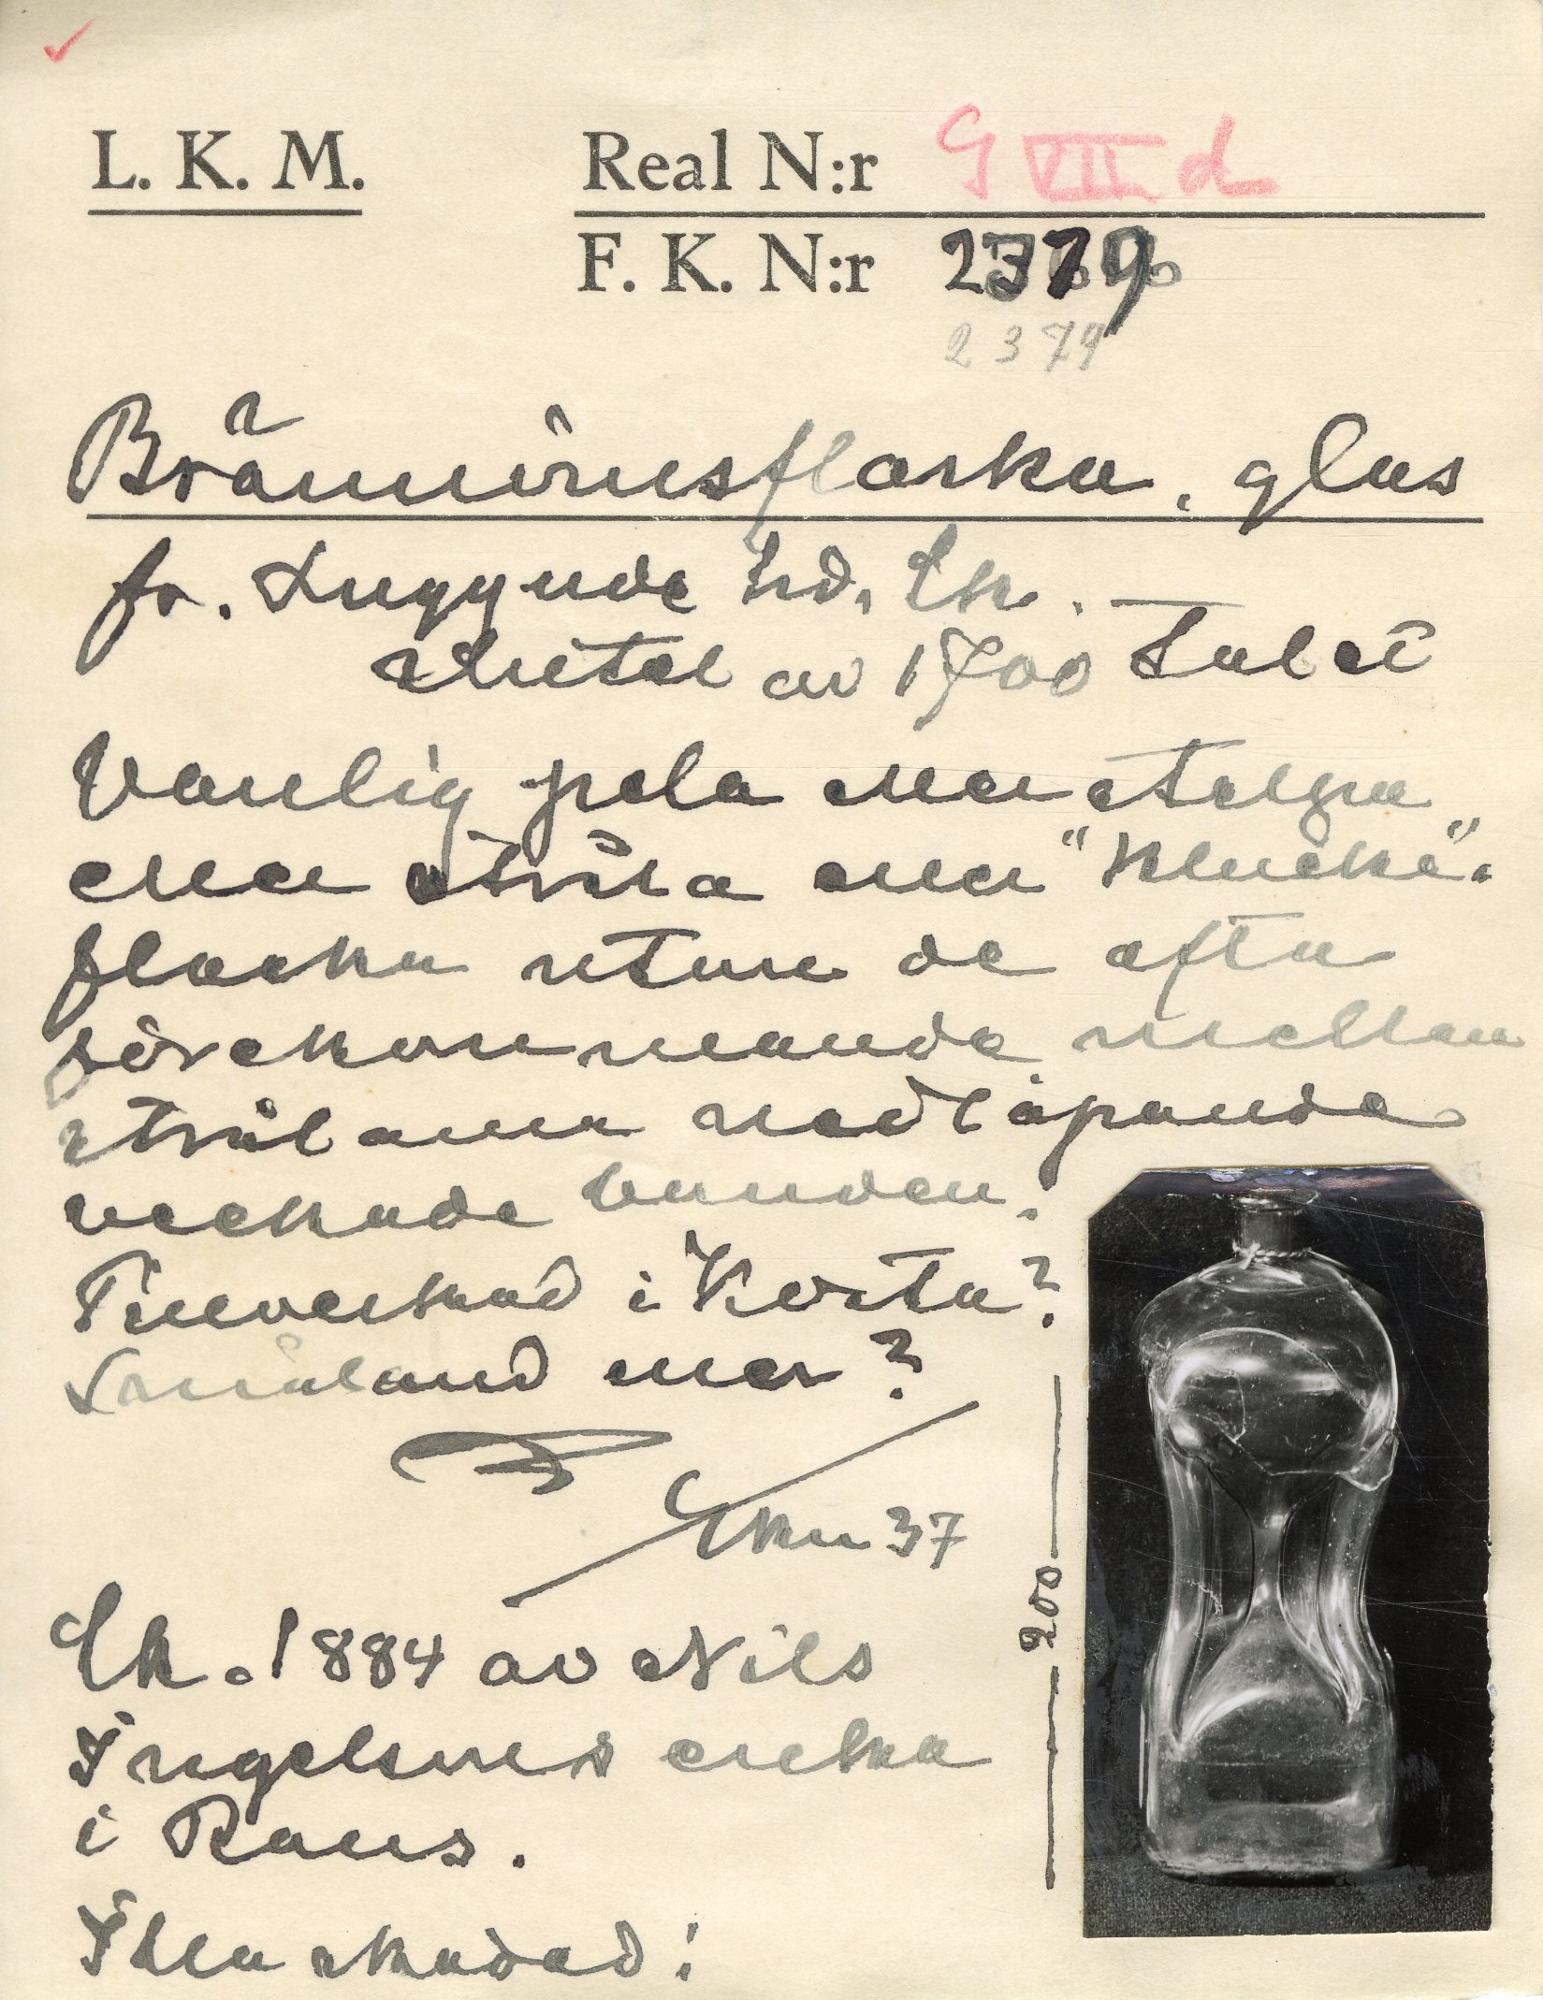 L. K. M.
Real N:r G VII d
F. K. N:r 2379
2379
Brännvinsflaska, glas
fr. Luggude hd, Sk.
slutet av 1700 talet
Vanlig pela men stelpa
eller stråla eller "Klucke".
flaska utan de ofta
förekommande mellan
strålarna nedlöpande
veckade banden.
Tillverkad i Kosta?
Småland eller?
Ekn 37
Ek. 1884 av Nils
Ingelsons enka
i Raus.
Illa skadad!
200